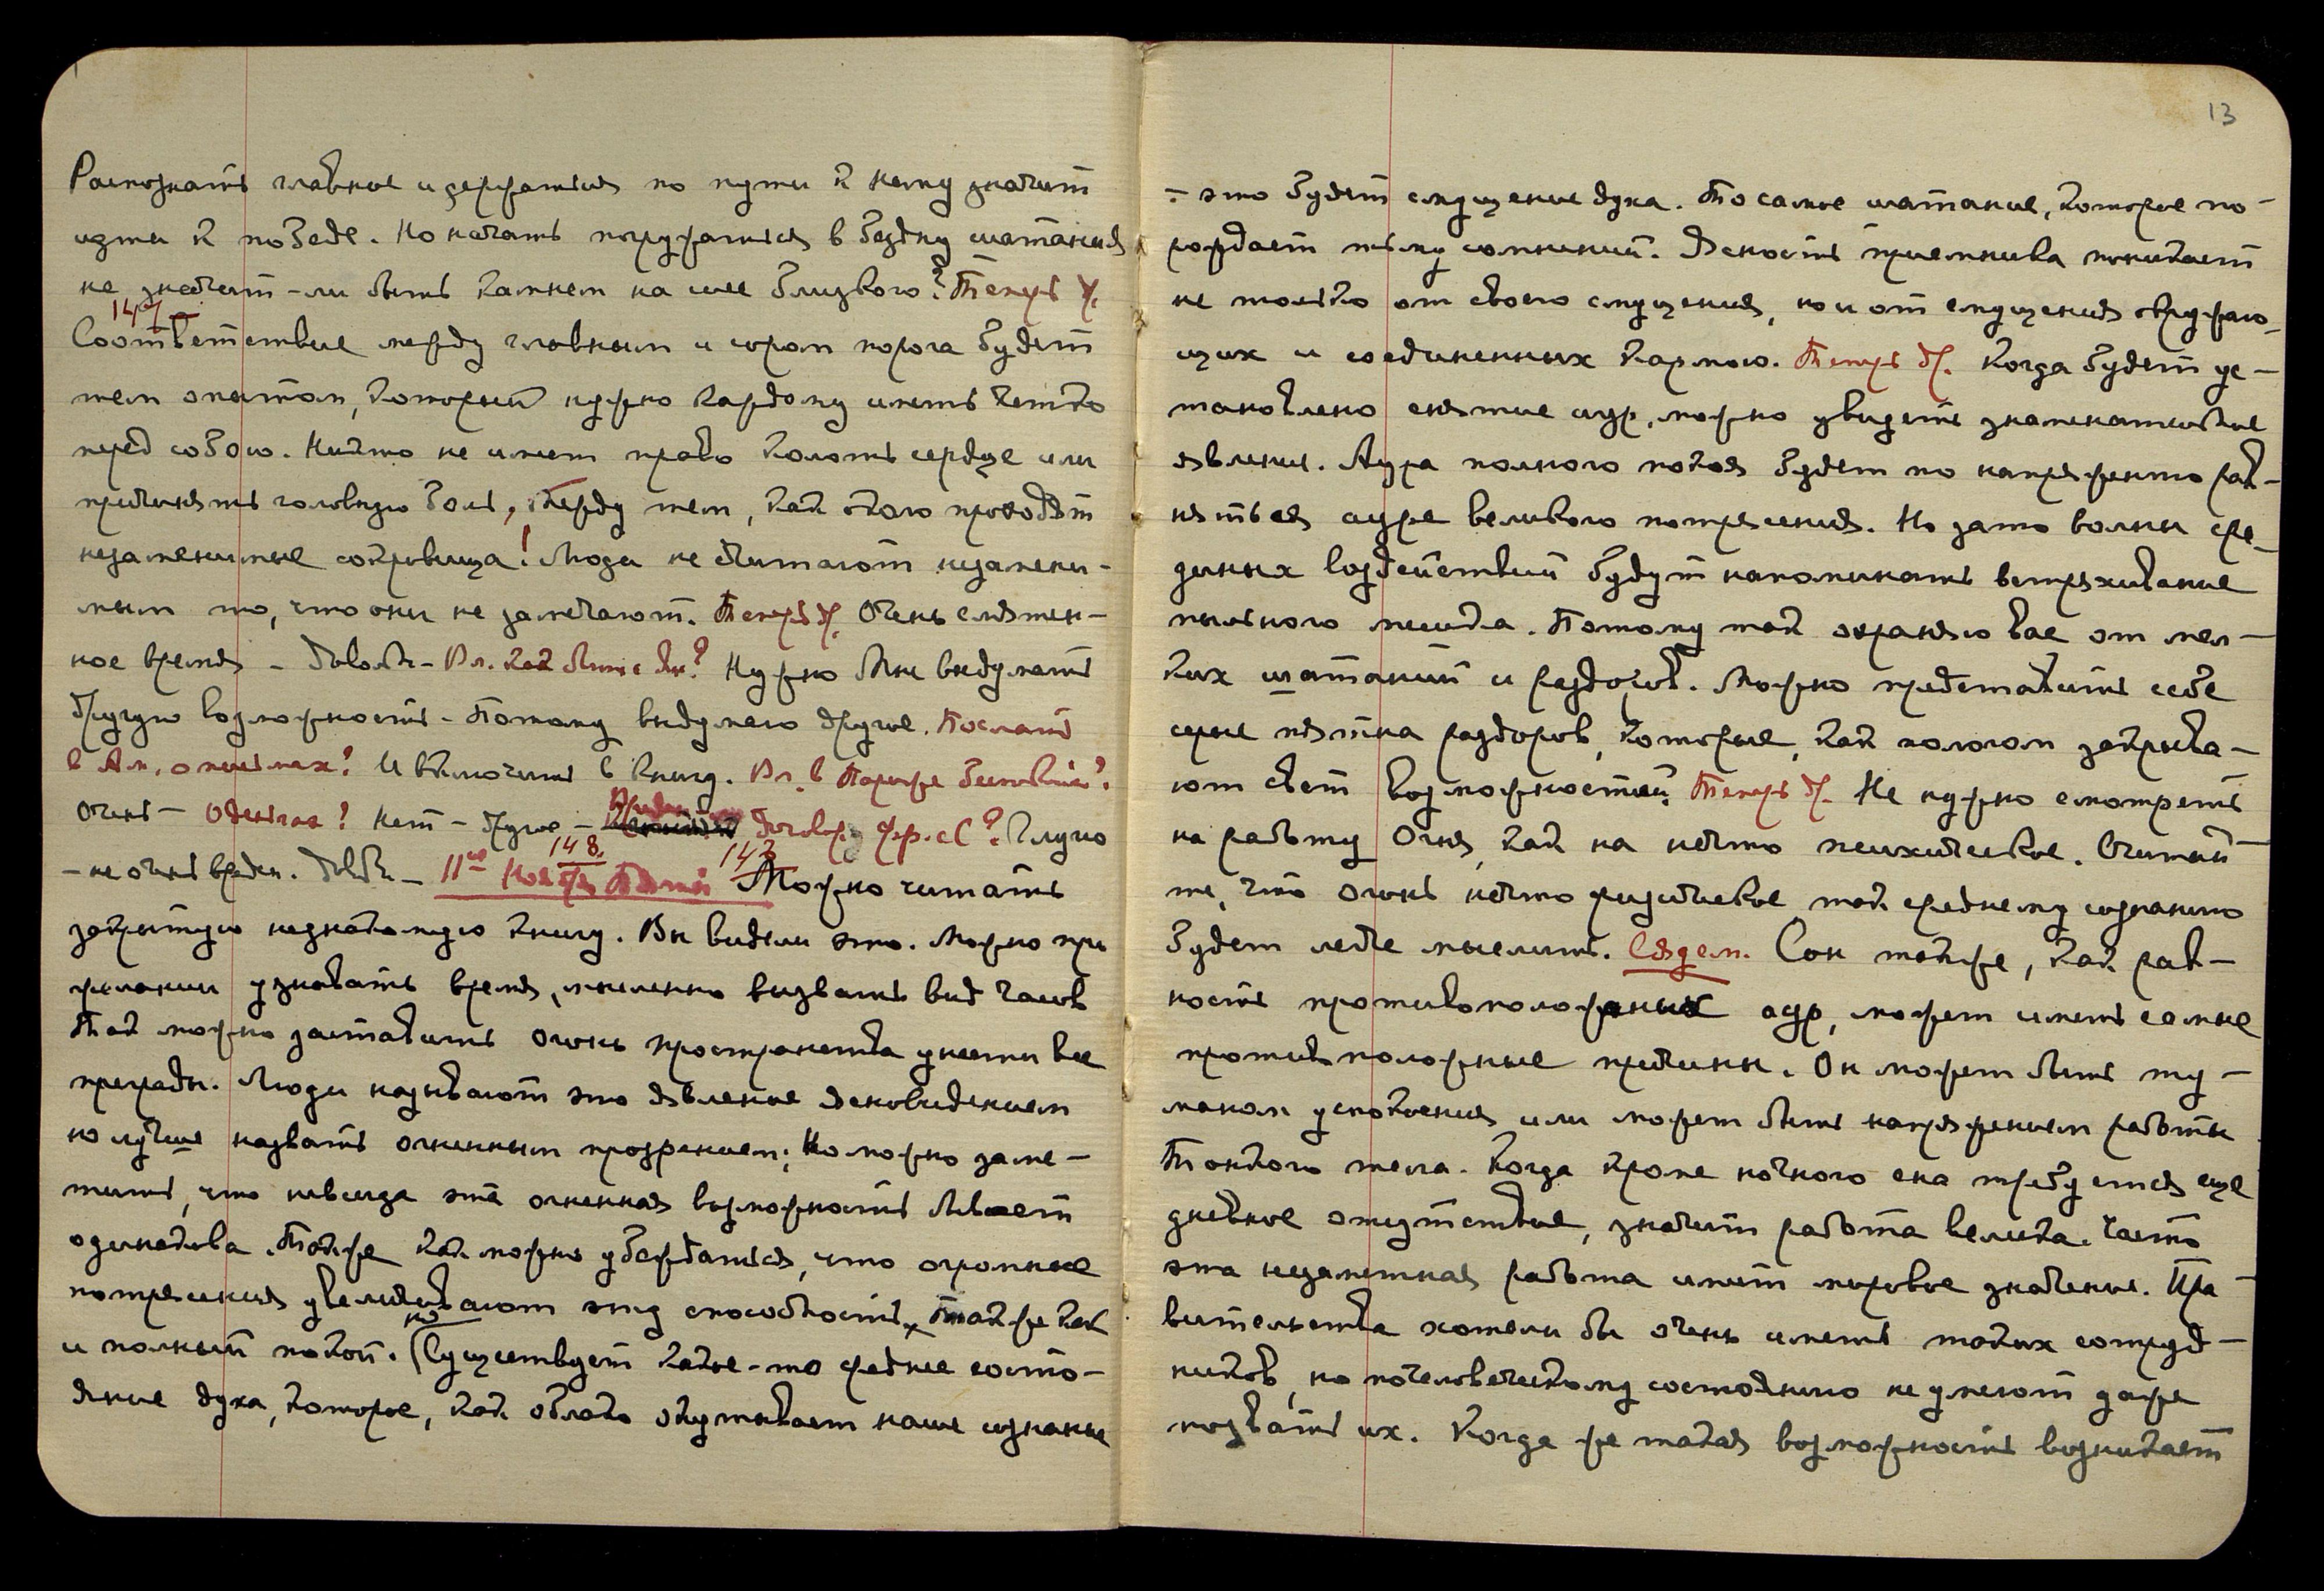 Распознать главное и держаться по пути к нему значит
идти к победе. Но начать погружаться в бездну шатания
не значит-ли быть камнем на шее близкого? Теперь др.
147
Соответствие между главным и сором порога будет
тем опытом, который нужно каждому иметь четко
перед собою. Никто не имеет право колоть сердце или
причинять головную боль, между тем, как около проходят
незаменимые сокровища! Люди не считают незамени-
мым то, что они не замечают. Теперь др. Очень смятен-
ное время - Довольно - Вл. как быть с Нужно Мне выдумать
другую возможность - Потому выдумаю другое. Послать
в Ам. о письмах? И включить в книгу. Вл. в Париже
Очень - Нет - другое - договор. Фр. с С? Глупо
- не очень вреден. Довольно - 11ое Ноября 148. 147 Можно читать
закрытую незнакомую книгу. Вы видели это. Можно при
желании узнавать время, мысленно вызвать вид часов
Так можно заставить огонь пространства унести все
преграды. Люди называют это явление ясновидением
но лучше назвать огненным прозрением; Но можно заме-
тить, что не всегда эта огненная возможность бывает
одинакова. Также как можно убеждаться, что огромные
потрясения увеличивают эту способность, также как
и полный покой. Но (Существует какое-то среднее состо-
яние духа, которое, как облако окутывает наше сознание
13
- это будет смущение духа. То самое шатание, которое по-
рождает тьму сомнений. Ясность приемника поникает
не только от своего смущения, но и от смущения окружаю-
щих и соединенных кармою. Теперь др. Когда будет ус-
тановлено снятие аур, можно увидеть знаменательные
явления. Аура полного покоя будет по напряженно рав-
няться ауре великого потрясения. Но зато волны сре-
динных воздействий будут напоминать встряхивание
пыльного мешка. Потому так охраняю вас от мел-
ких шатаний и раздоров. Можно представить себе
серые пятна раздоров, которые, как пологом закрыва-
ют свет возможностей? Теперь др. Не нужно смотреть
на работу Огня, как на нечто психическое. Считай-
те, что огонь нечто физическое так среднему сознанию
будет легче мыслить. Сядем. Сон также, как рав-
ность противоположных аур, может иметь самые
противоположные причины. Он может быть ту-
маном успокоения или может быть напряжением работы
Тонкого тела. Когда кроме ночного сна требуется еще
дневное отсутствие, значит работа велика. Часто
эта незаметная работа имеет мировое значение. Пра-
вительства хотели бы очень иметь таких сотруд-
ников, но по человеческому состоянию не умеют даже
позвать их. Когда же такая возможность возникает